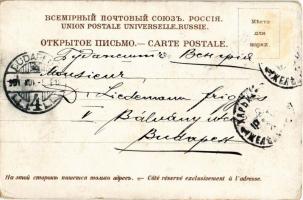 ВСЕМІРНЫЙ ПОЧТОВЫЙ СОЮЗЪ. РОССІЯ.
UNION POSTALE UNIVERSELLE. RUSSIE.
ОТКРЫТОЕ ПИСЬМО.— CARTE POSTALE.
Мѣсто
для
марки.
Будапештъ Венгрія
Monsieur
Liedemann Frigyes
V Bálvány
Budapest
На этой сторонѣ пишется только адресъ. — Côté réservé exclusivement à l'adresse.